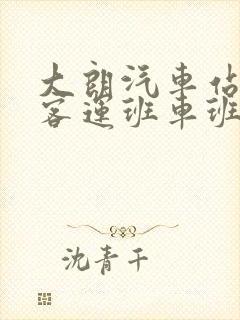 大朗汽車佔
客運班車班
沈青千